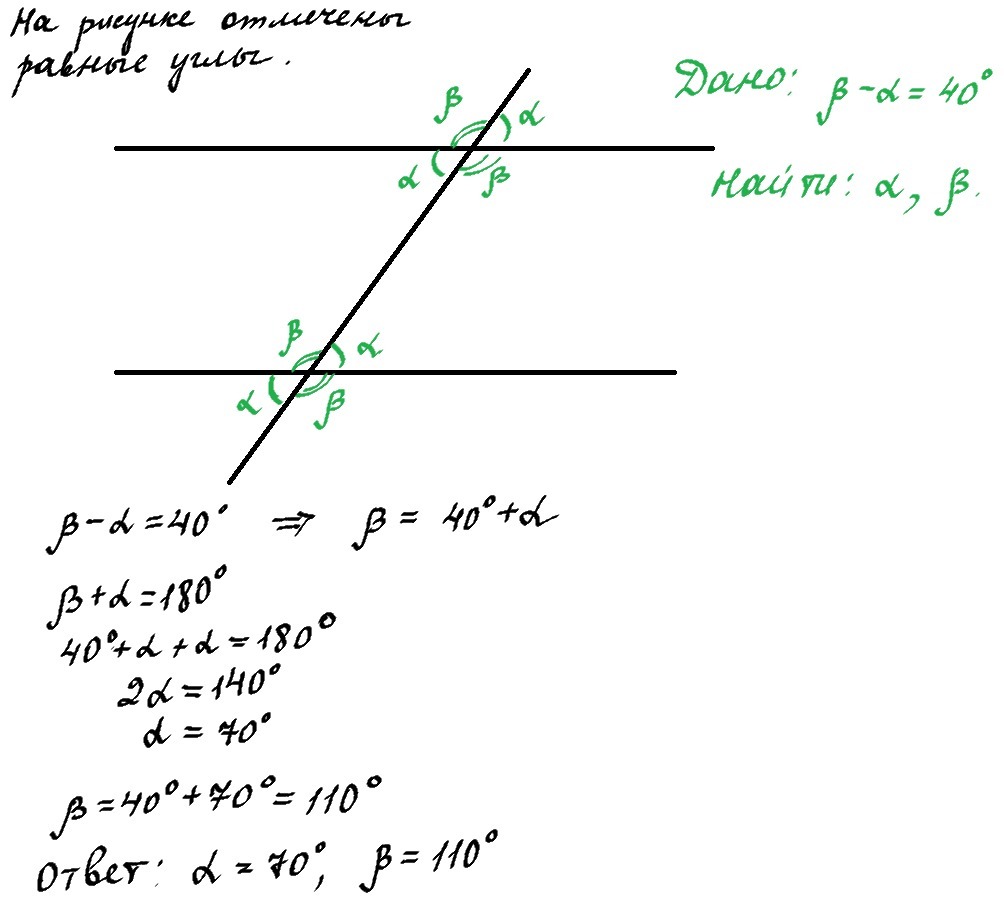 На рисунке отмечены
равные углы.
Дано: β - α = 40°
Найти: α, β.
β α
α β
β α
α β
β - α = 40° ⇒ β = 40° + α
β + α = 180°
40° + α + α = 180°
2α = 140°
α = 70°
β = 40° + 70° = 110°
Ответ: α = 70°, β = 110°